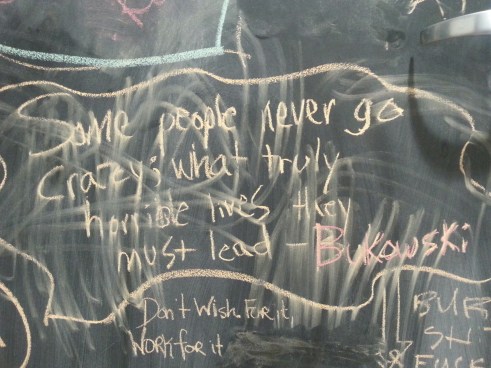 Some people never go
crazy; what truly
horrible lives they
must lead - Bukowski
Don't wish for it,
WORK for it
BUR